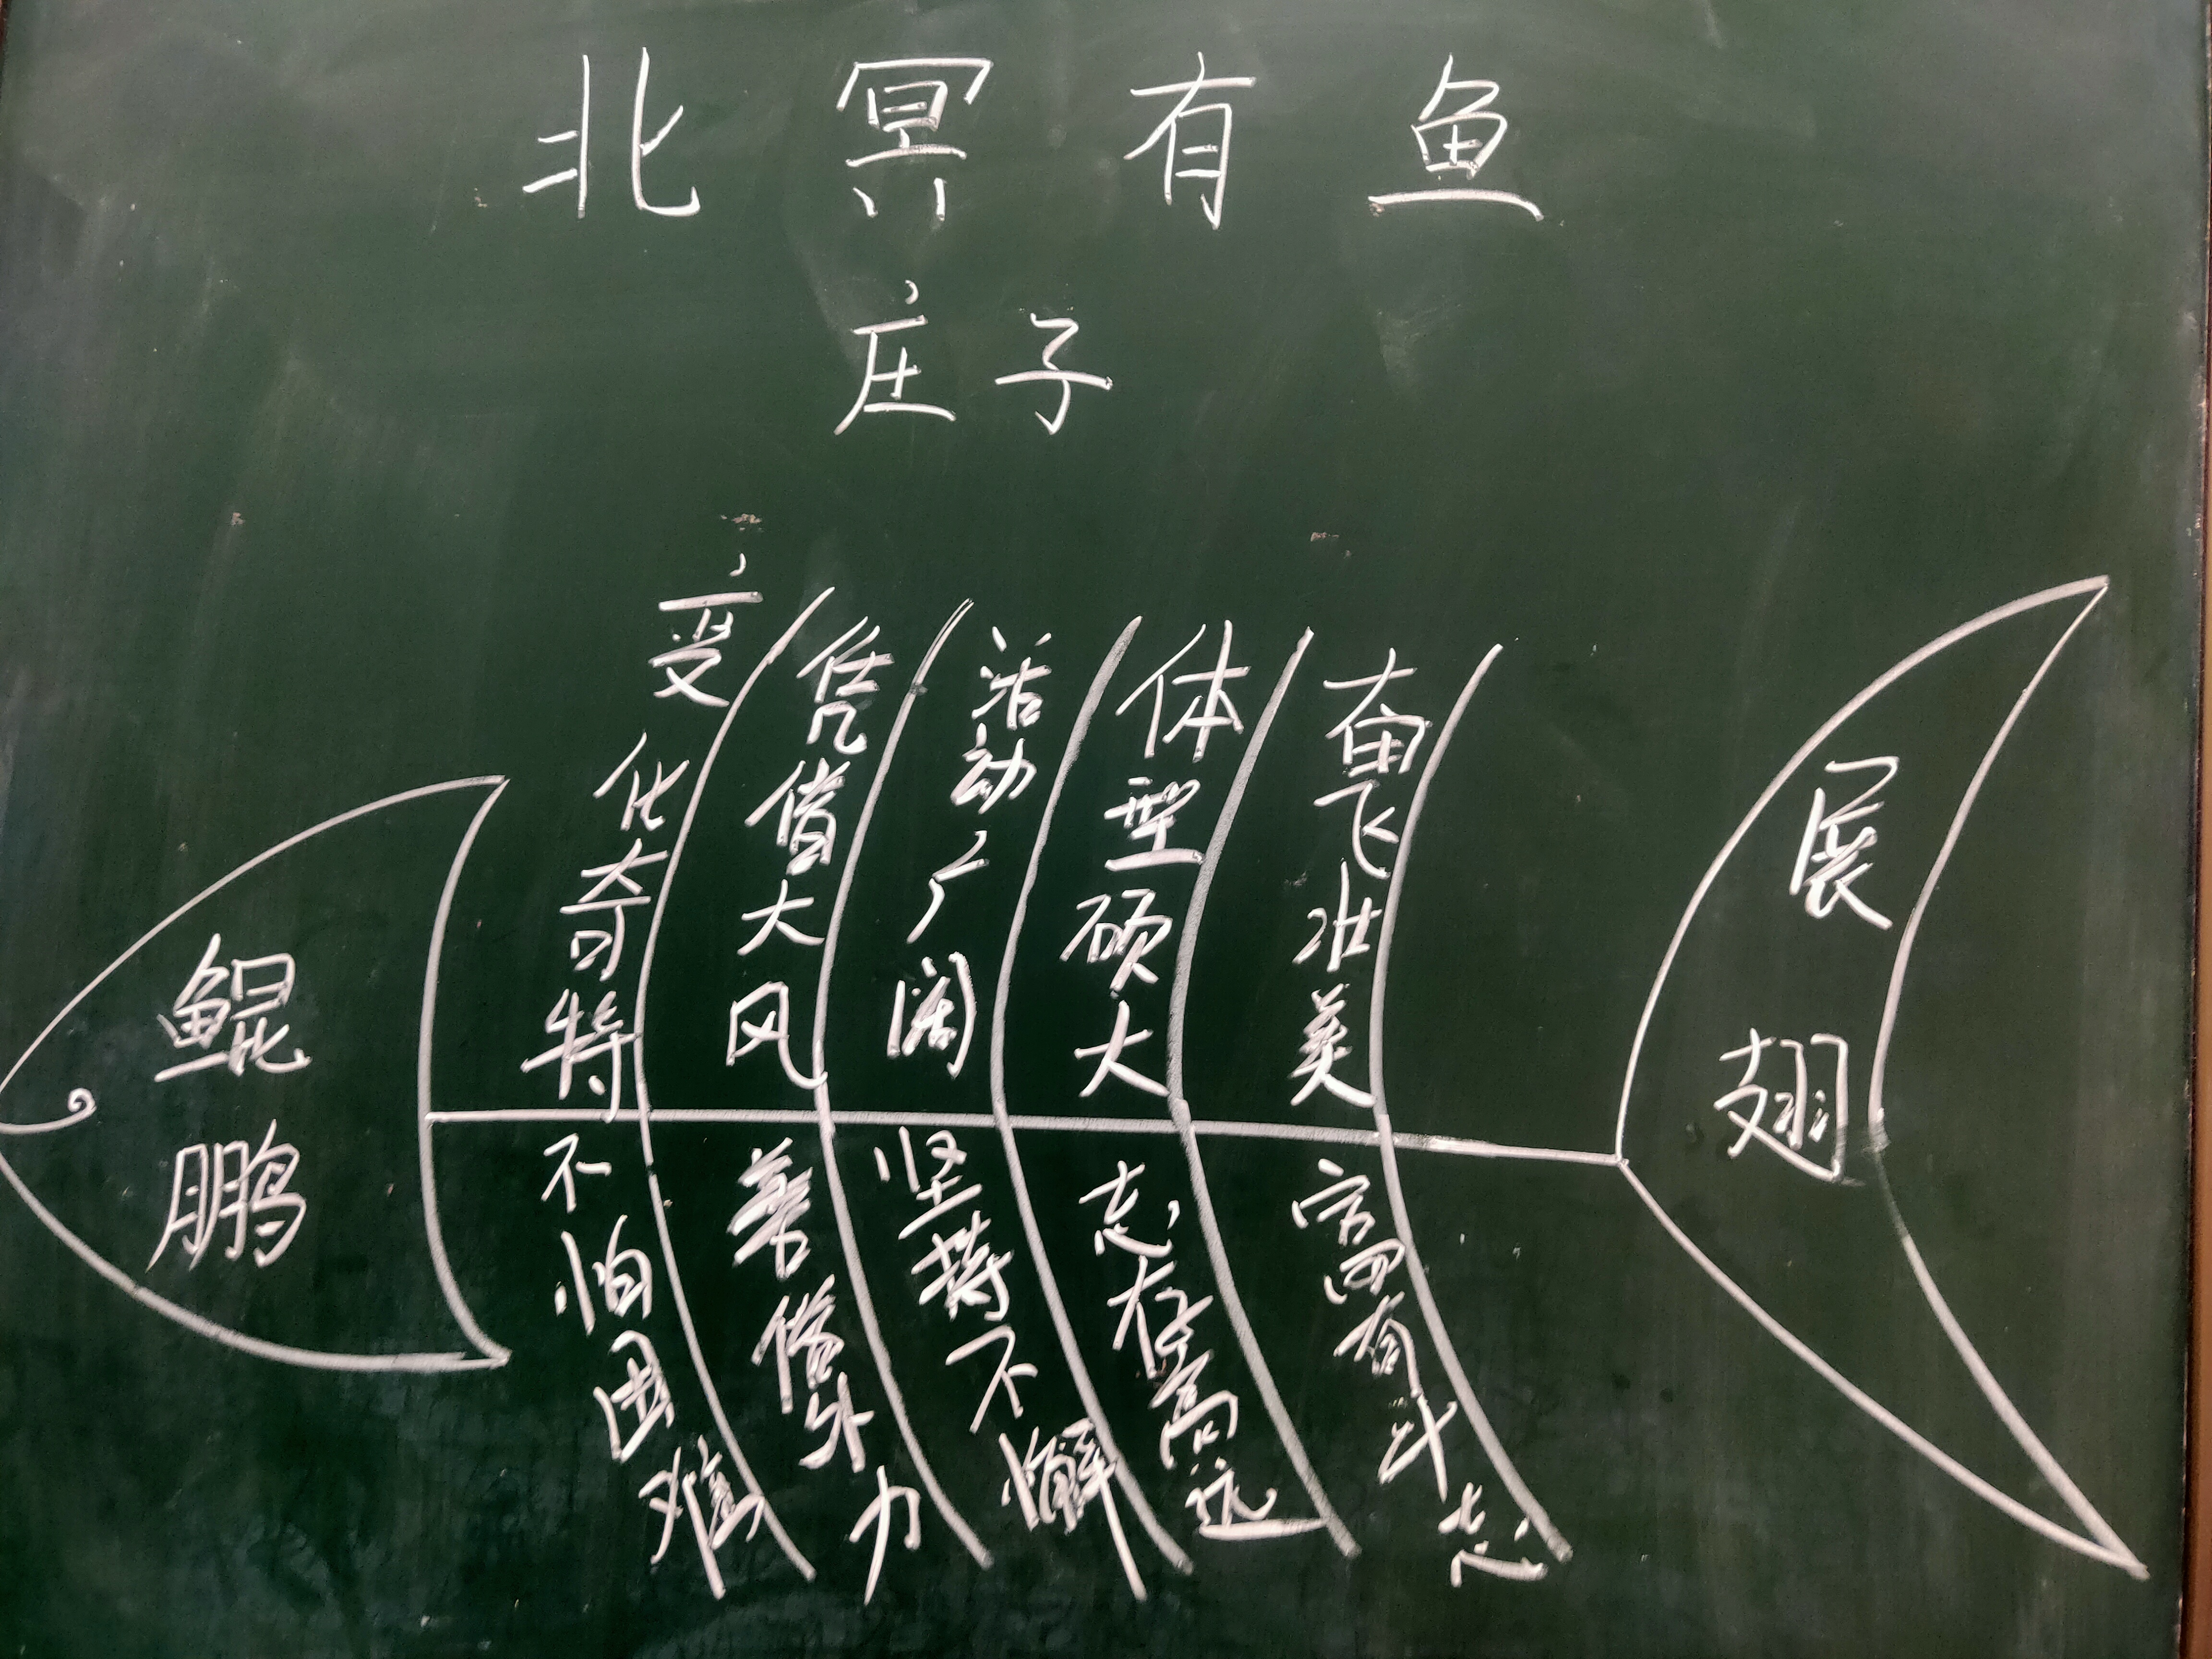 北冥有鱼
庄子
鲲鹏
变化奇特
凭借大风
活动广阔
体型硕大
奋飞壮美
不怕困难
善借外力
坚持不懈
志存高远
富有斗志
展翅